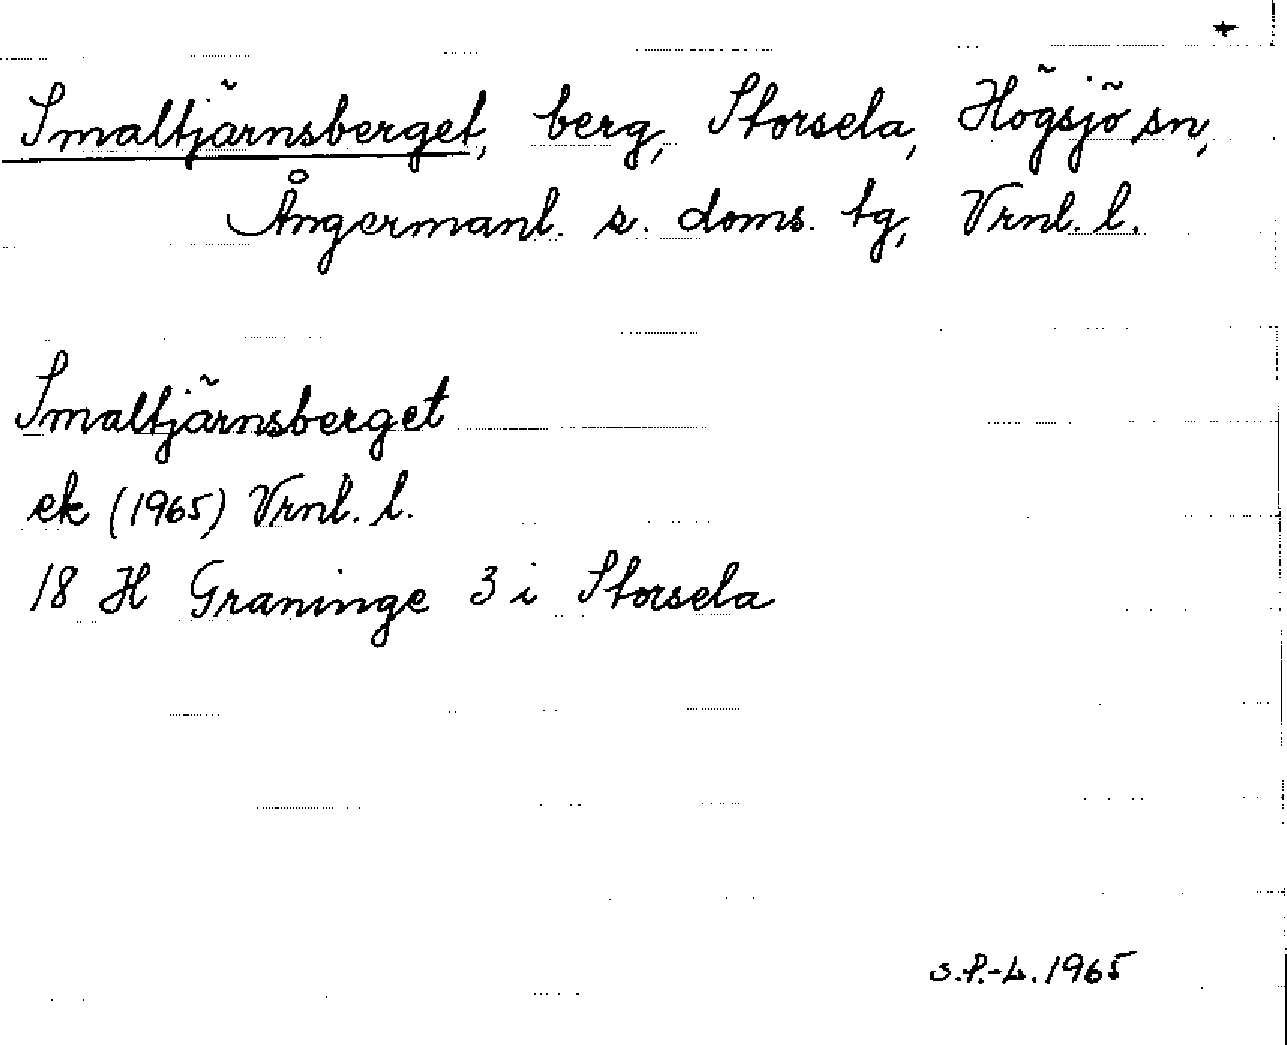 Smaltjärnsberget, berg, Storsela, Högsjö sn,
Ångermanl. s. doms. tg, Vrnl. l.
Smaltjärnsberget
ek (1965) Vrnl. l.
18 H Graninge 3 i Storsela
S.P.-L. 1965